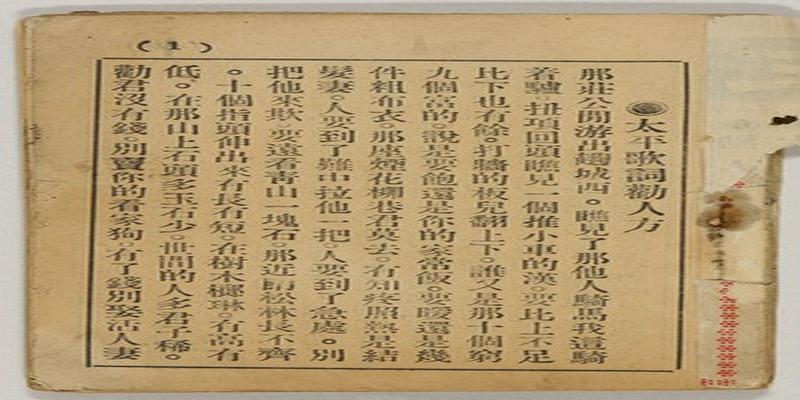 (1)
太平歌詞勸人方
那莊公閒游出趟城西。瞧見了那他人騎馬我這騎
着驢。扭項回頭瞧見一個推小車的漢。要比上不足
比下也有餘。打牆的板兒翻上下。誰又是那十個窮
九個富的。說是要飽還是你的家常飯。要暖還是幾
件粗布衣。那座煙花柳巷君莫去。有知疼照熱是結
髮妻。人要到了難中拉他一把。人要到了急處。別
把他來欺。要遠看靑山一塊石。那近睄松林長不齊
。十個指頭伸出來有長有短。在樹木榔琳。有高有
低。在那山上石頭多玉石少。世間的人多君子稀。
勸君沒有錢。別賣你的看家狗。有了錢別娶活人妻